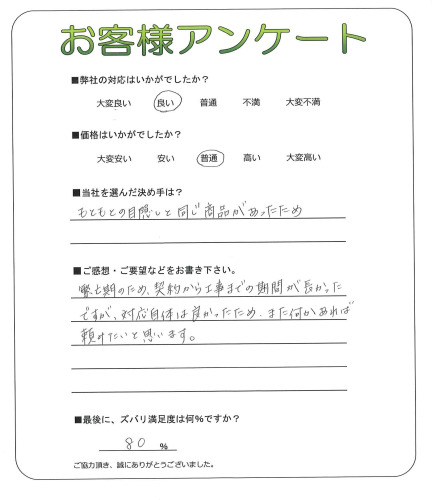 お客様アンケート
■弊社の対応はいかがでしたか？
大変良い 良い 普通 不満 大変不満
■価格はいかがでしたか？
大変安い 安い 普通 高い 大変高い
■当社を選んだ決め手は？
もともとの目隠しと同じ商品があったため
■ご感想・ご要望などをお書き下さい。
繁忙期のため、契約から工事までの期間が長かった
ですが、対応自体は良かったため、また何かあれば
頼みたいと思います。
■最後に、ズバリ満足度は何%ですか？
80 %
ご協力頂き、誠にありがとうございました。